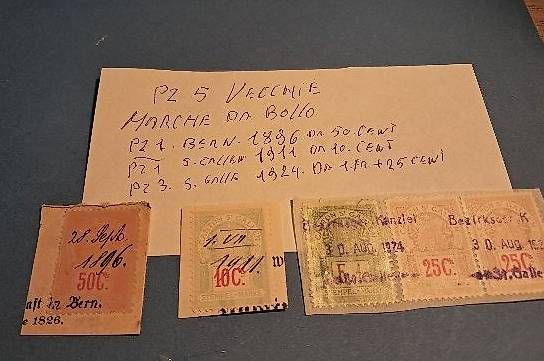 PZ 5 VECCHIE
MARCHE DA BOLLO
PZ 1. BERN. 1896 DA 50. CENT
PZ 1 S. GALLEN 1911 DA 10. CENT
PZ 3. S. GALLE 1924. DA 1.FR.+25 CENT
28. Sept.
1896.
50C.
aft in Bern.
e 1826.
1. VII
1911.
10C.
Kanzlei
Bezirksger. K
30. AUG. 1924
30. AUG. 192
25C.
25C.
St. Galle